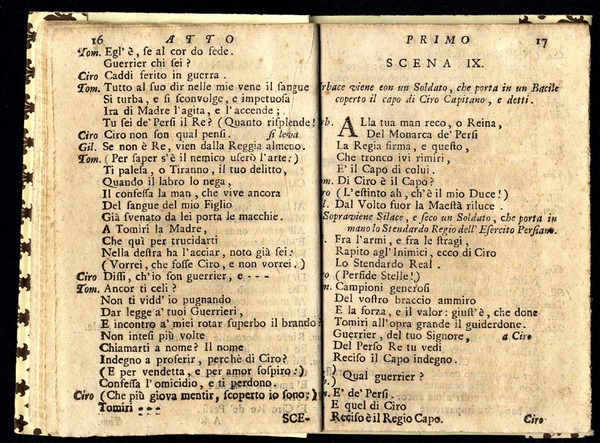 16 ATTO
Tom. Egl' è, se al cor do fede.
Guerrier chi sei?
Ciro Caddi ferito in guerra.
Tom. Tutto al suo dir nelle mie vene il sangue
Si turba, e si sconvolge, e impetuosa
Ira di Madre l'agita, e l'accende;
Tu sei de' Persi il Re? (Quanto risplende!
Ciro Ciro non son qual pensi. si leva
Gil. Se non è Re, vien dalla Reggia almeno.
Tom. (Per saper s'è il nemico userò l'arte:)
Ti palesa, o Tiranno, il tuo delitto,
Quando il labro lo nega,
Il confessa la man, che vive ancora
Del sangue del mio Figlio
Già svenato da lei porta le macchie.
A Tomiri la Madre,
Che quì per trucidarti
Nella destra ha l'acciar, noto già sei:
(Vorrei, che fosse Ciro, e non vorrei.)
Ciro Dissi, ch'io son guerrier, e - - -
Tom. Ancor ti celi?
Non ti vidd' io pugnando
Dar legge a' tuoi Guerrieri,
E incontro a' miei rotar superbo il brando?
Non intesi più volte
Chiamarti a nome? Il nome
Indegno a proferir, perchè di Ciro?
(E per vendetta, e per amor sospiro:)
Confessa l'omicidio, e ti perdono.
Ciro (Che più giova mentir, scoperto io sono;)
Tomiri - - -
SCE-
PRIMO 17
SCENA IX.
rbace viene con un Soldato, che porta in un Bacile
coperto il capo di Ciro Capitano, e detti.
rb. ALla tua man reco, o Reina,
Del Monarca de' Persi
La Regia firma, e questo,
Che tronco ivi rimiri,
E' il Capo di colui.
m. Di Ciro è il Capo?
ro (L'estinto ah, ch'è il mio Duce!)
l. Dal Volto fuor la Maestà riluce.
Sopraviene Silace, e seco un Soldato, che porta in
mano lo Stendardo Regio dell' Esercito Persiano.
Fra l'armi, e fra le stragi,
Rapito agl'Inimici, ecco di Ciro
Lo Stendardo Real.
ro (Perfide Stelle!)
m. Campioni generosi
Del vostro braccio ammiro
E la forza, e il valor: giust'è, che done
Tomiri all'opra grande il guiderdone.
Guerrier, del tuo Signore, a Ciro
Del Perso Re tu vedi
Reciso il Capo indegno.
) Qual guerrier?
m. E' de' Persi.
E quel di Ciro
Reciso è il Regio Capo. Ciro